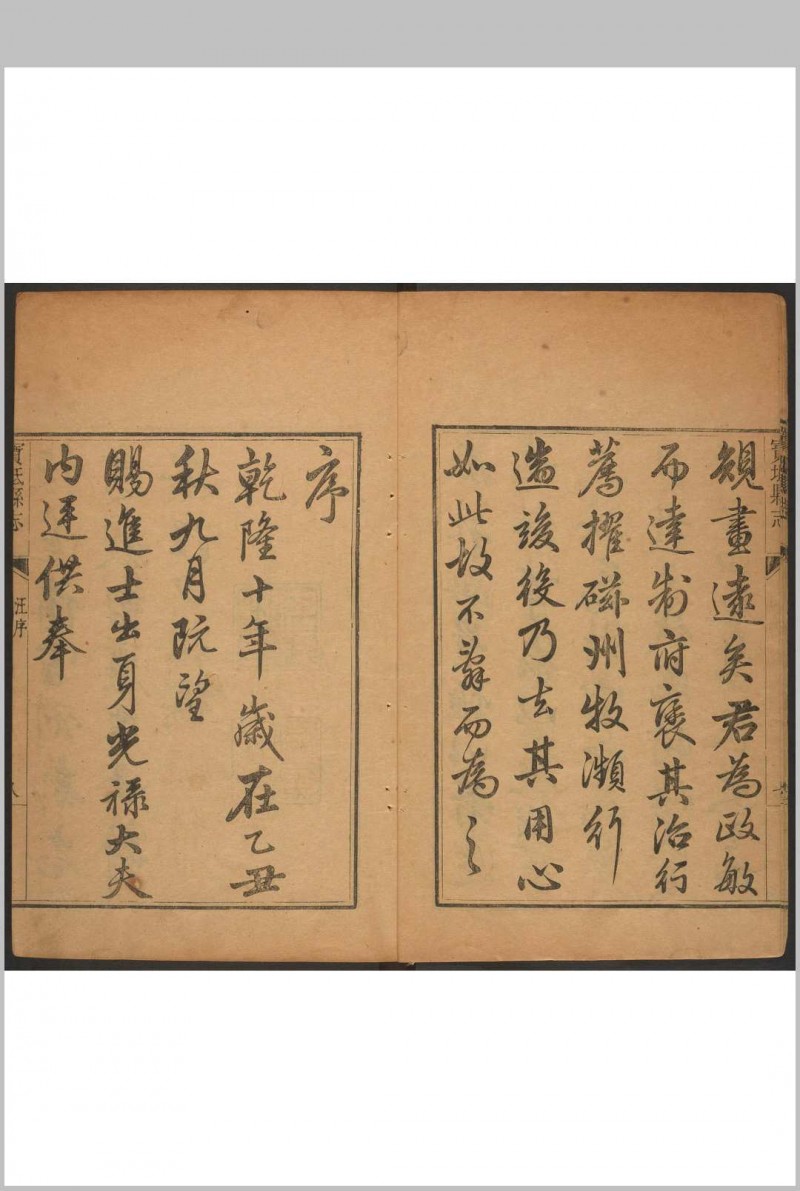 規畫遠矣君為政敏
而達制府褒其治行
薦擢磁州牧瀕行
遄竣後乃去其用心
如此故不辭而為之
序
乾隆十年歲在乙丑
秋九月既望
賜進士出身光祿大夫
內廷供奉
寶坻縣志
汪序